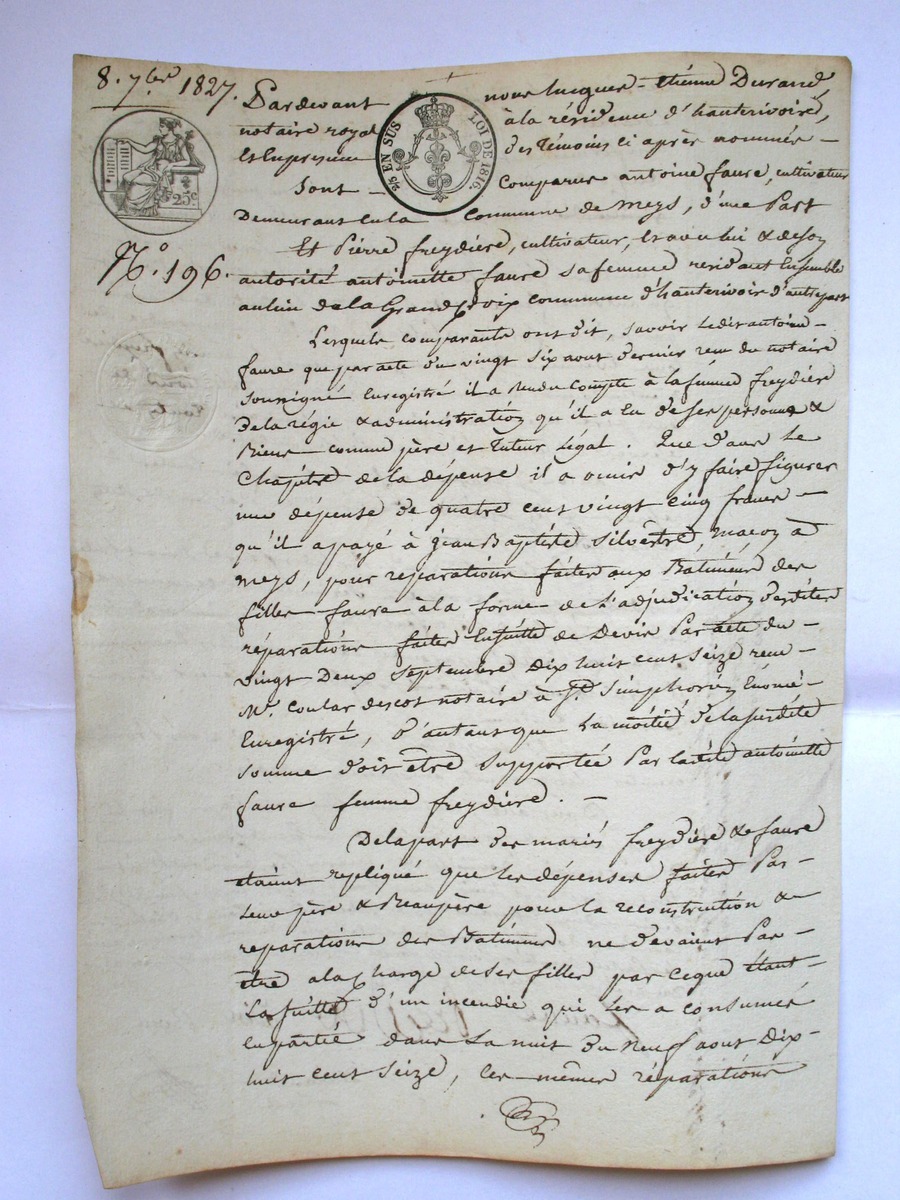 8. 7bre 1827.
Pardevant nous Lucques-étienne Durand,
notaire royal à la résidence d'hauterivoire,
Et En presence des Témoins ci après nommés -
Sont - Comparus antoine faure, cultivateur
Demeurant en la Commune de Meys, d'une Part
Et Pierre freydière, cultivateur, Et avec lui & de son
autorité antoinette faure sa femme residant Ensemble
au lieu de la Grand Croix commune d'hauterivoir d'autre part
Lesquels comparants ont dit, savoir Ledit antoine -
faure que par acte du vingt six aout dernier reçu du notaire
soussigné Enregistré il a rendu Compte à la femme freydière
De la régie & administration qu'il a Eu de ses personne &
Biens comme père et Tuteur Légal. Que dans Le
Chapitre de la dépense il a omis d'y faire figurer
une dépense de quatre cent vingt cinq francs -
qu'il a payé à Jean Baptiste Silvestre, maçon à
Meys, pour reparations faites aux Batiments des
filles faure à la forme de L'adjudication desdites
réparations faites Ensuitte de Devis Par acte du -
vingt Deux Septembre Dix huit cent Seize reçu -
Me. Coular descos notaire à St. Simphorien
Enregistré, D'autant que La moitié de la susdite
somme doit être supportée Par ladite antoinette
faure femme freydière. -
De la part des mariés freydière & faure
étaient repliqué que les dépenses faites Par -
Leur père & Beaupère pour la reconstruction &
reparations des Batiments ne devaient Pas -
être a la Charge de ses filles par ce que étant -
La suitte d'un incendie qui les a consumés
en partie dans La nuit Du Neuf aout Dix-
huit cent Seize, Les mêmes réparations
25 EN SUS LOI DE 1816.
25c
No. 196.